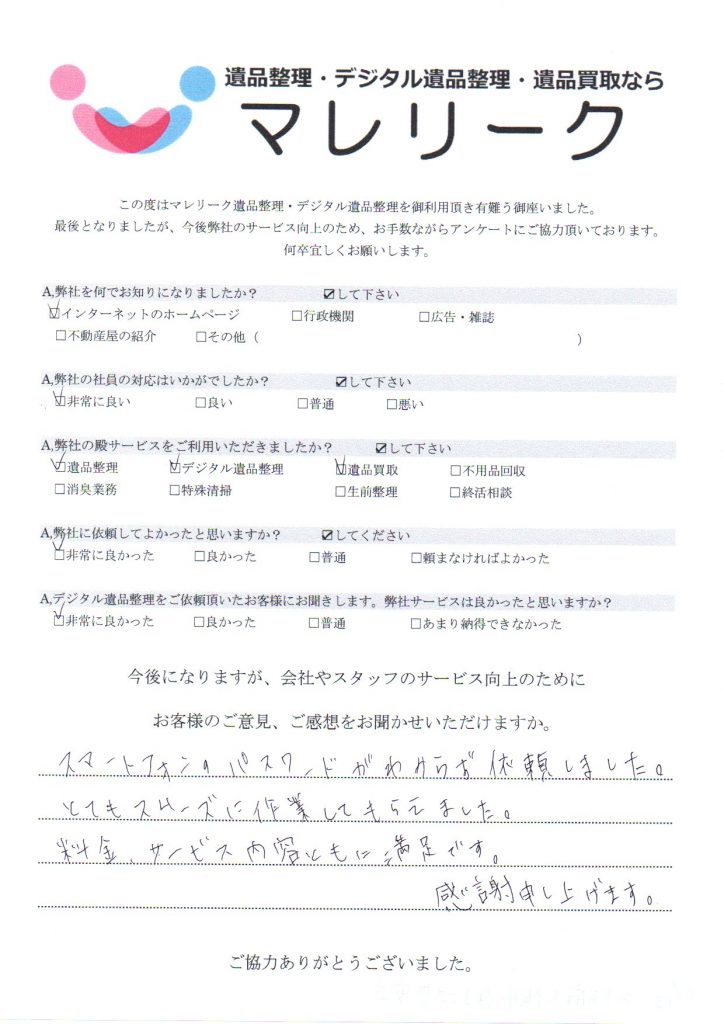 遺品整理・デジタル遺品整理・遺品買取なら
マレリーク
この度はマレリーク遺品整理・デジタル遺品整理を御利用頂き有難う御座いました。
最後となりましたが、今後弊社のサービス向上のため、お手数ながらアンケートにご協力頂いております。
何卒宜しくお願いします。
A,弊社を何でお知りになりましたか？ ☑して下さい
☑インターネットのホームページ □行政機関 □広告・雑誌
□不動産屋の紹介 □その他（ ）
A,弊社の社員の対応はいかがでしたか？ ☑して下さい
☑非常に良い □良い □普通 □悪い
A,弊社の殿サービスをご利用いただきましたか？ ☑して下さい
☑遺品整理 ☑デジタル遺品整理 ☑遺品買取 □不用品回収
□消臭業務 □特殊清掃 □生前整理 □終活相談
A,弊社に依頼してよかったと思いますか？ ☑してください
☑非常に良かった □良かった □普通 □頼まなければよかった
A,デジタル遺品整理をご依頼頂いたお客様にお聞きします。弊社サービスは良かったと思いますか？
☑非常に良かった □良かった □普通 □あまり納得できなかった
今後になりますが、会社やスタッフのサービス向上のために
お客様のご意見、ご感想をお聞かせいただけますか。
スマートフォンのパスワードがわからず依頼しました。
とてもスムーズに作業してもらえました。
料金、サービス内容ともに満足です。
感謝申し上げます。
ご協力ありがとうございました。